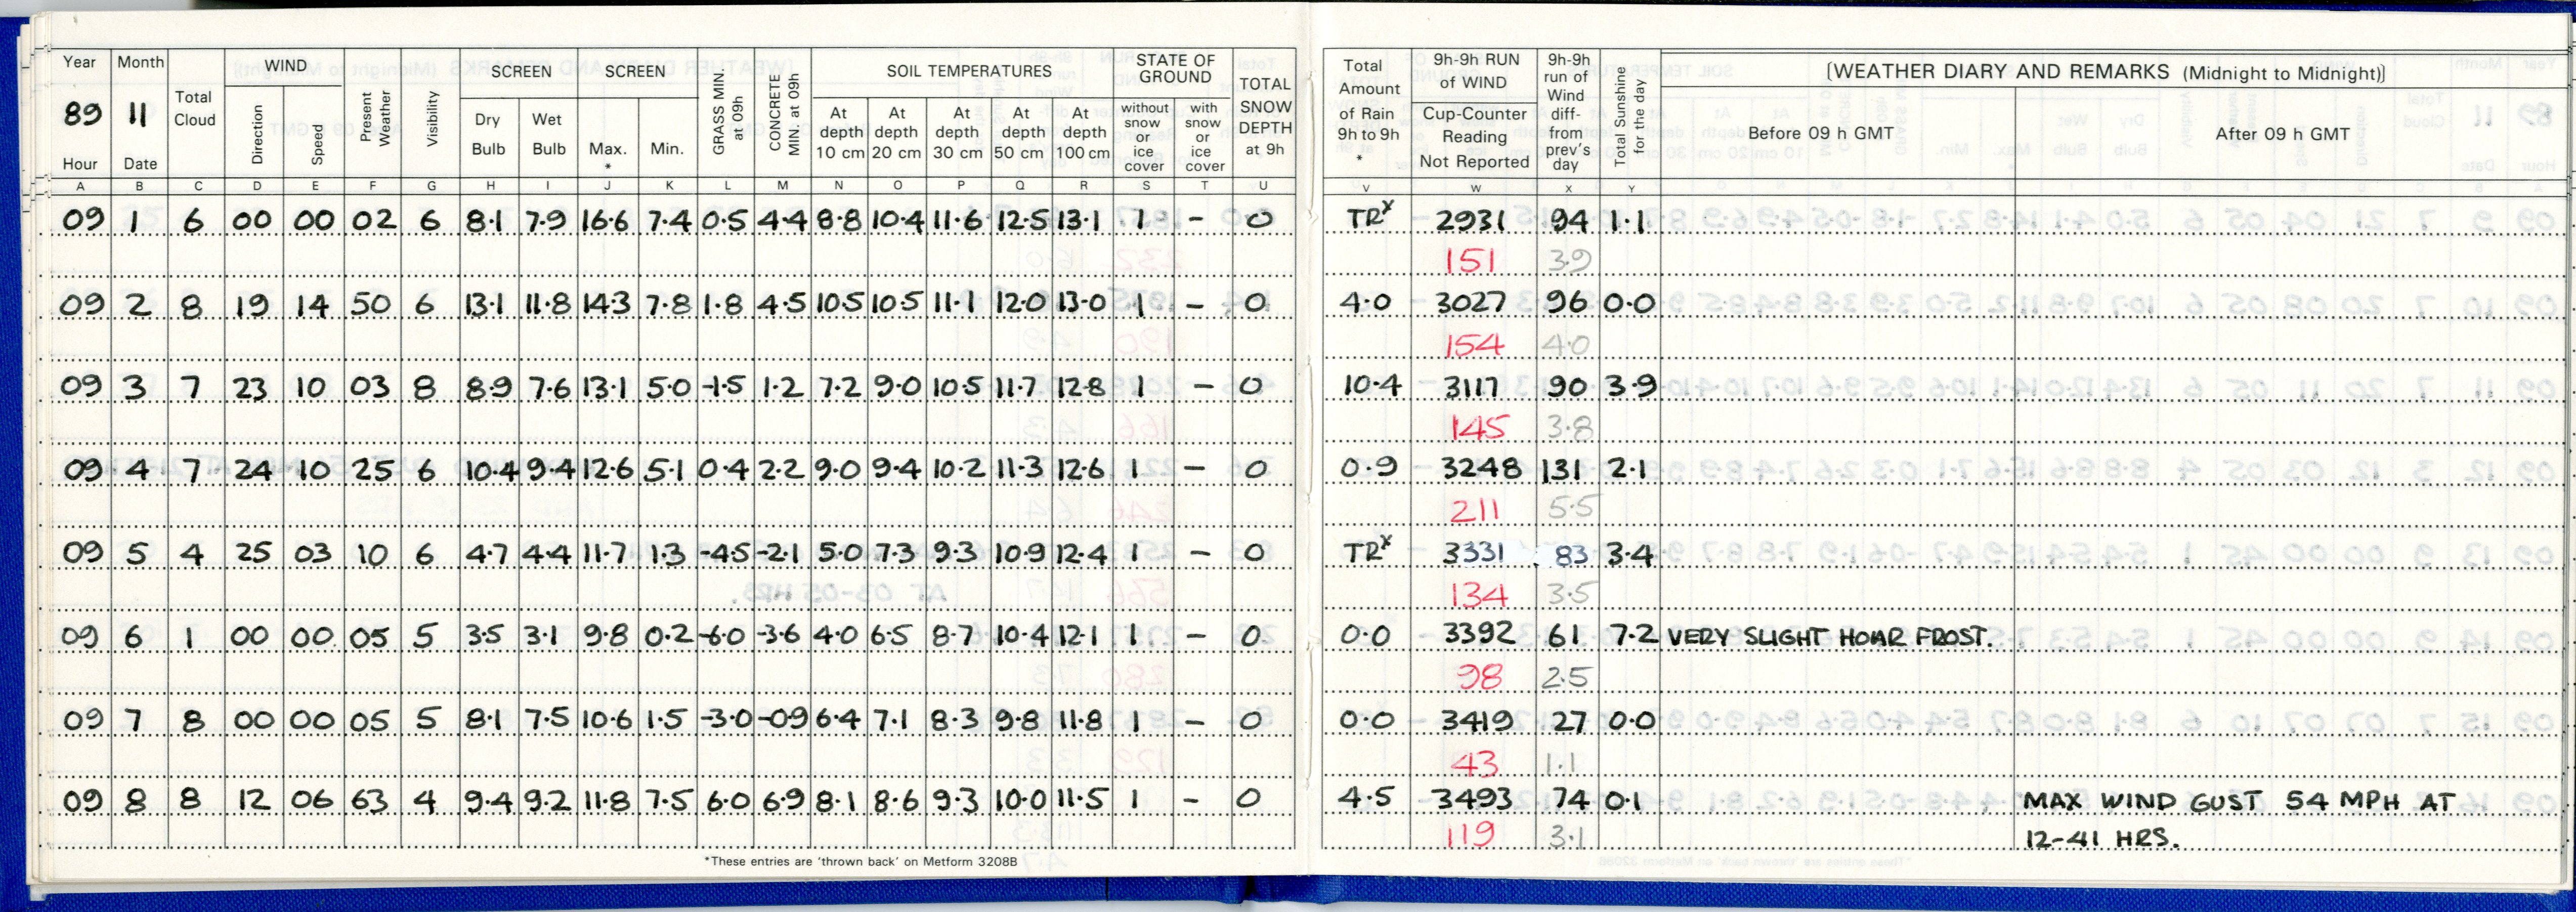 Year Month Total Cloud WIND Present Weather Visibility SCREEN SCREEN GRASS MIN. at 09h CONCRETE MIN. at 09h SOIL TEMPERATURES STATE OF GROUND TOTAL SNOW DEPTH at 9h Total Amount of Rain 9h to 9h * 9h-9h RUN of WIND 9h-9h run of Wind diff- from prev's day Total Sunshine for the day [WEATHER DIARY AND REMARKS (Midnight to Midnight)]
89 11 Direction Speed Dry Bulb Wet Bulb Max. * Min. At depth 10 cm At depth 20 cm At depth 30 cm At depth 50 cm At depth 100 cm without snow or ice cover with snow or ice cover Cup-Counter Reading Not Reported Before 09 h GMT After 09 h GMT
Hour Date
A B C D E F G H I J K L M N O P Q R S T U V W X Y
09 1 6 00 00 02 6 8.1 7.9 16.6 7.4 0.5 4.4 8.8 10.4 11.6 12.5 13.1 1 – 0 TRx 2931 94 1.1
151 3.9
09 2 8 19 14 50 6 13.1 11.8 14.3 7.8 1.8 4.5 10.5 10.5 11.1 12.0 13.0 1 – 0 4.0 3027 96 0.0
154 4.0
09 3 7 23 10 03 8 8.9 7.6 13.1 5.0 -1.5 1.2 7.2 9.0 10.5 11.7 12.8 1 – 0 10.4 3117 90 3.9
145 3.8
09 4 7 24 10 25 6 10.4 9.4 12.6 5.1 0.4 2.2 9.0 9.4 10.2 11.3 12.6 1 – 0 0.9 3248 131 2.1
211 5.5
09 5 4 25 03 10 6 4.7 4.4 11.7 1.3 -4.5 -2.1 5.0 7.3 9.3 10.9 12.4 1 – 0 TRx 3331 83 3.4
134 3.5
09 6 1 00 00 05 5 3.5 3.1 9.8 0.2 -6.0 -3.6 4.0 6.5 8.7 10.4 12.1 1 – 0 0.0 3392 61 7.2 VERY SLIGHT HOAR FROST.
98 2.5
09 7 8 00 00 05 5 8.1 7.5 10.6 1.5 -3.0 -0.9 6.4 7.1 8.3 9.8 11.8 1 – 0 0.0 3419 27 0.0
43 1.1
09 8 8 12 06 63 4 9.4 9.2 11.8 7.5 6.0 6.9 8.1 8.6 9.3 10.0 11.5 1 – 0 4.5 3493 74 0.1 MAX WIND GUST 54 MPH AT
119 3.1 12-41 HRS.
*These entries are 'thrown back' on Metform 3208B